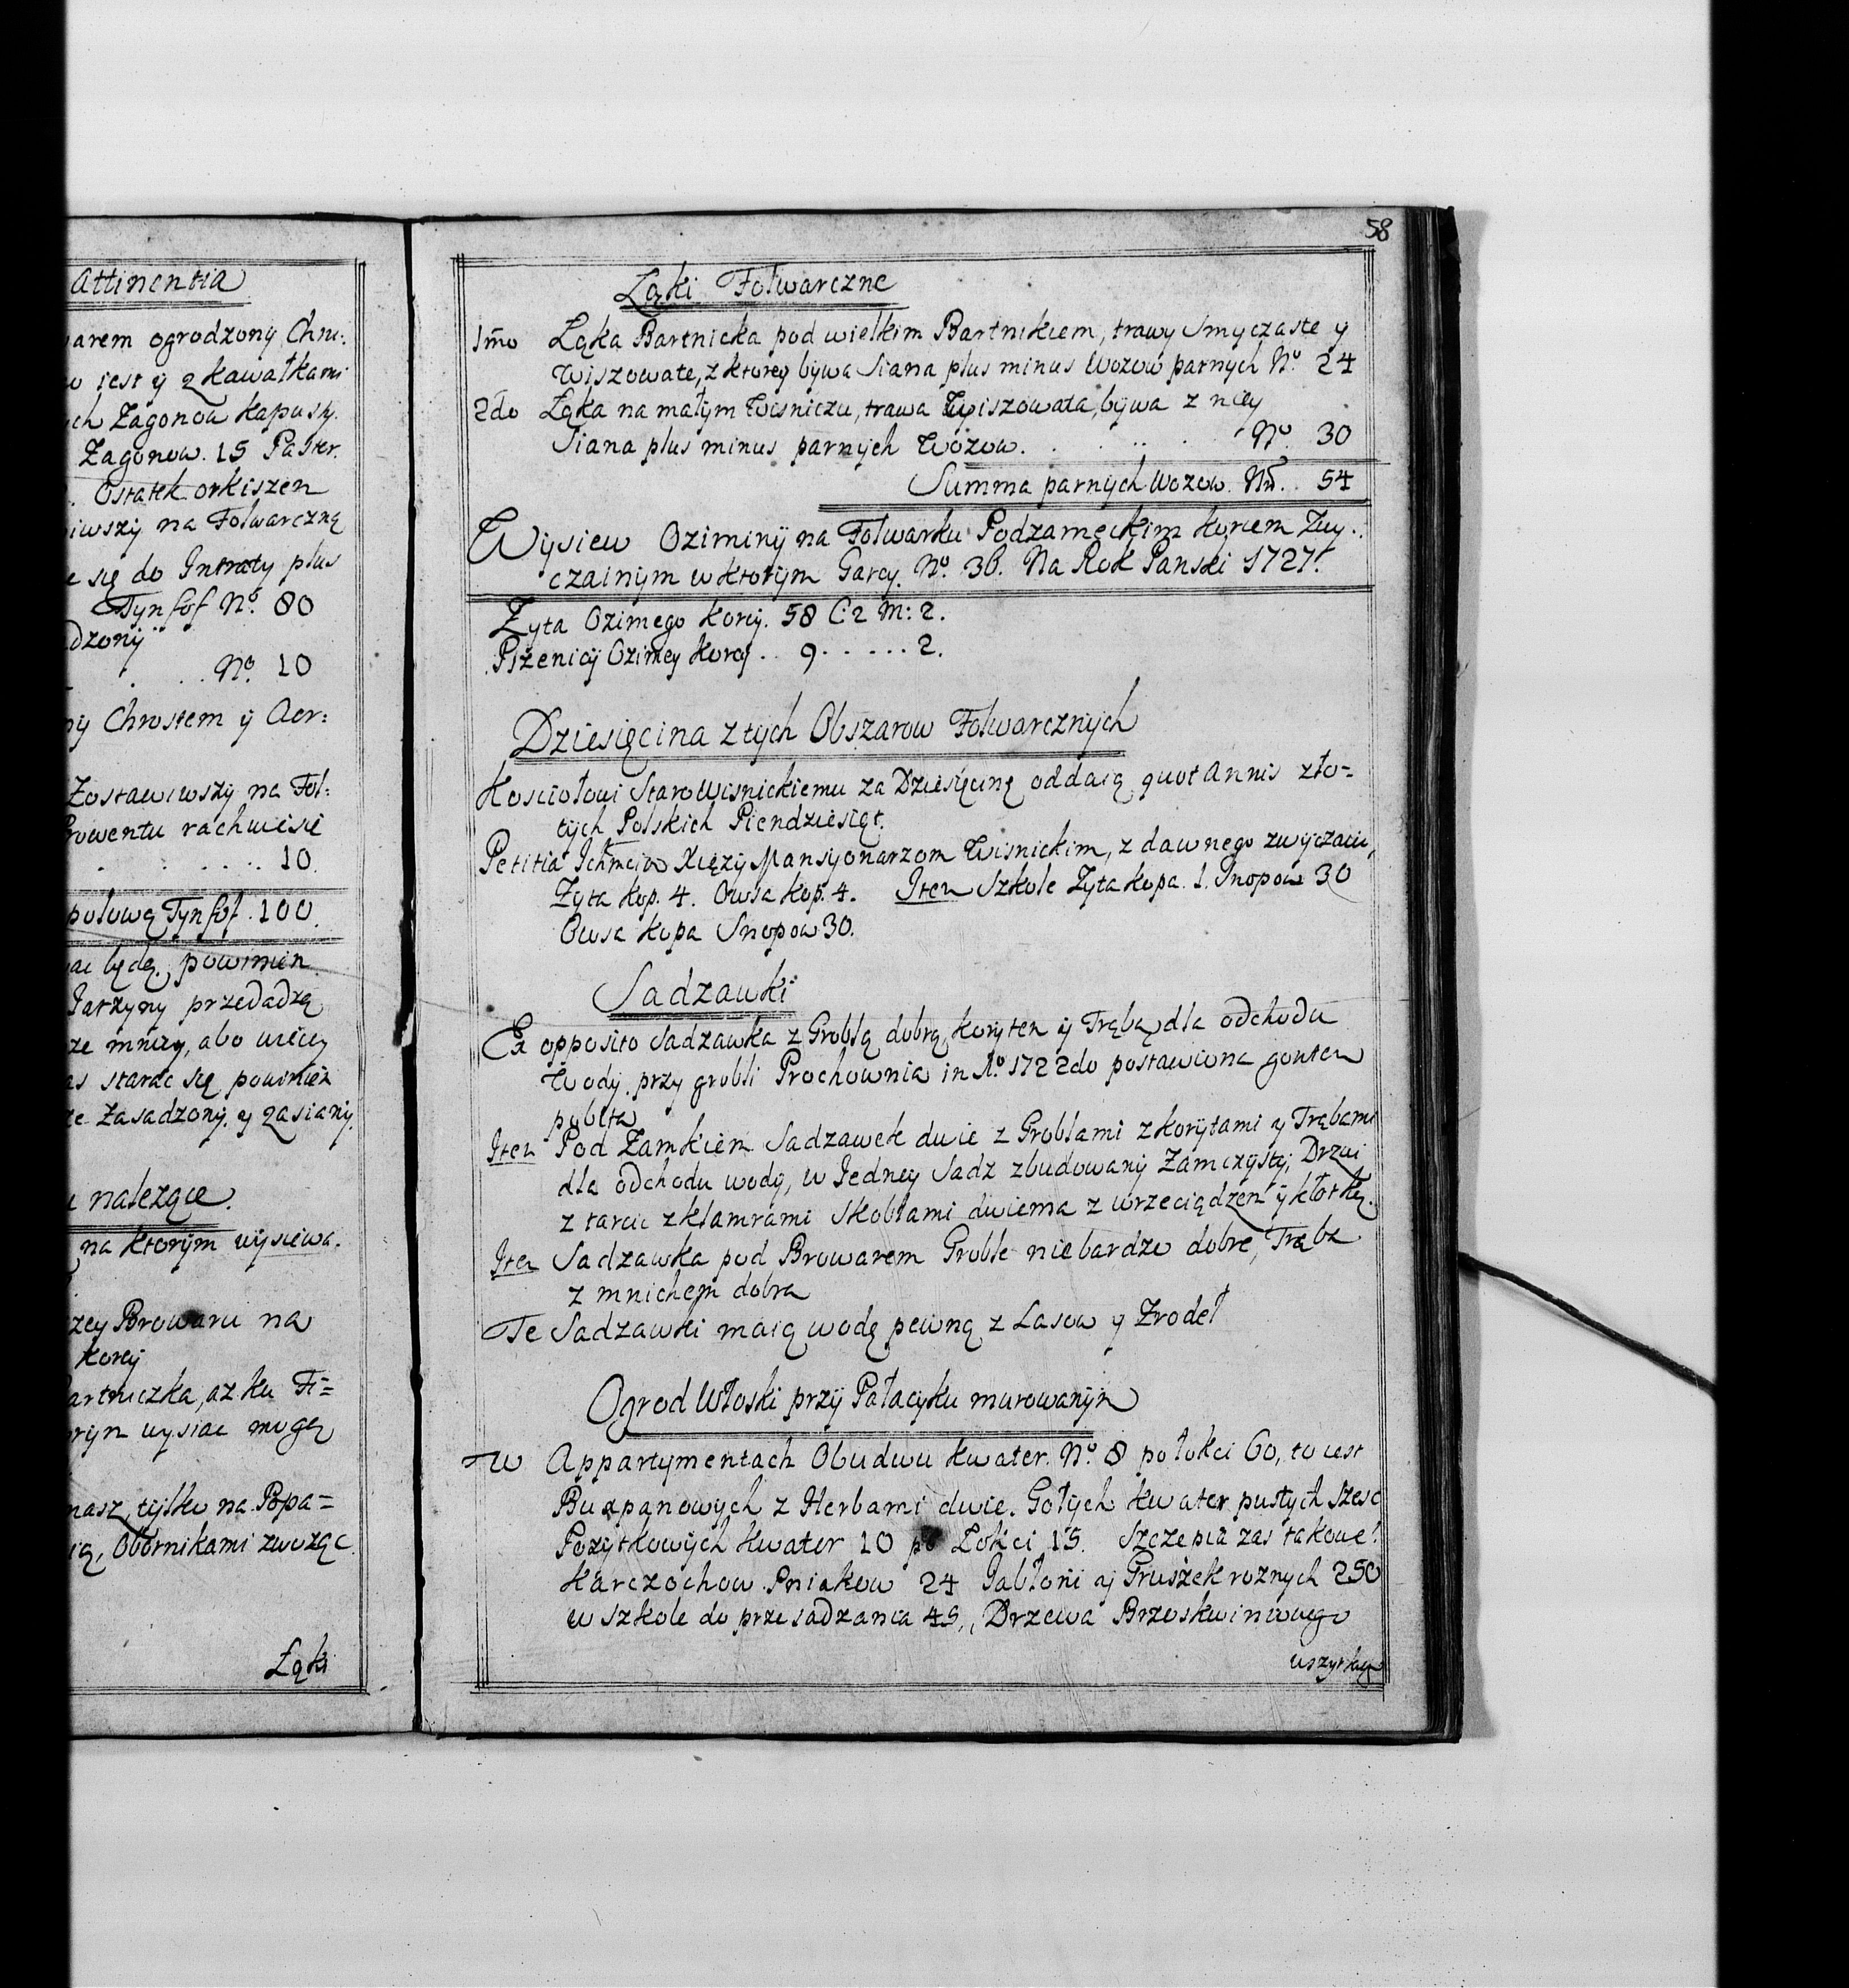 Attinentia
arem ogrodzony Chru:
w iest y z kawałkami
ych Zagonow kapusty.
Zagonow. 15 Paster.
Ostatek orkiszem
iwszy na Folwarczną
e się do Intraty plus
Tynfof No. 80
dzony
No. 10
ny Chrostem y Acr:
Zostawiwszy na Fol:
Prowentu rachuie się
10.
połową Tynfof. 100.
ac będą. powinien
Jarzyny przedadzą
ze mniey, abo więcey
as starac się powinien
ze Zasadzony. y zasiany.
u nalezące.
na ktorym wysiewa.
zey Browaru na
Korcy
artniczka, az ku Fi=
orym wysiac mogą
nasz, tylko na Popa=
ią, Obornikami zwożąc.
Łąki
58
Łąki Folwarczne
1mo Łąka Bartnicka pod wielkim Bartnikiem, trawy Smyczaste y
Wiszowate, z ktorey bywa Siana plus minus Wozow parnych No. 24
2do Łąka na małym Wisniczu, trawa Wiszowata, bywa z niey
Siana plus minus parnych Wozow. . . . . No. 30
Summa parnych Wozow. No. 54
Wysiew Oziminy na Folwarku Podzameckim korcem Zwy:
czainym w ktorym Garcy. No. 36. Na Rok Panski 1727.
Zyta Ozimego Korcy. 58 C: 2 M: 2.
Pszenicy Ozimey Korcy . . 9 . . . . . 2.
Dziesięcina z tych Obszarow Folwarcznych
Kosciołowi Starowisnickiemu za Dziesięcinę oddaią quot Annis zło=
tych Polskich Piendziesiąt.
Petitia Ichmciow Xięzy Mansyonarzom Wisnickim, z dawnego zwyczaiu,
Zyta kop. 4. Owsa kop. 4. Item Szkole Zyta kopa. 1. Snopow 30
Owsa kopa Snopow 30.
Sadzawki
Ex opposito Sadzawka z Groblą dobrą, korytem y Trąbą dla odchodu
Wody. przy grobli Prochownia in Ao. 1722do postawiona gontem
pobita
Item Pod Zamkiem Sadzawek dwie z Groblami z korytami y Trąbami
dla odchodu wody, w Iedney Sadz zbudowany Zamczysty; Drzwi
z tarcic z klamrami Skoblami dwiema z wrzeciądzem y kłotką.
Item Sadzawka pod Browarem Groble nie bardzo dobre, Trąba
z mnichem dobra
Te Sadzawki maią wodę pewną z Lasow y Zrodeł
Ogrod Włoski przy Pałacyku murowanym
W Appartymentach Obudwu kwater. No. 8 po łokci 60, to iest
Buxpanowych z Herbami dwie. Gołych kwater pustych szesc
Pozytkowych kwater 10 po Łokci 15. Szczepia zas takowe:
Karczochow Pniakow 24 Jabłoni y Gruszek roznych 250
w szkole do przesadzania 45,, Drzewa Brzoskwiniowego